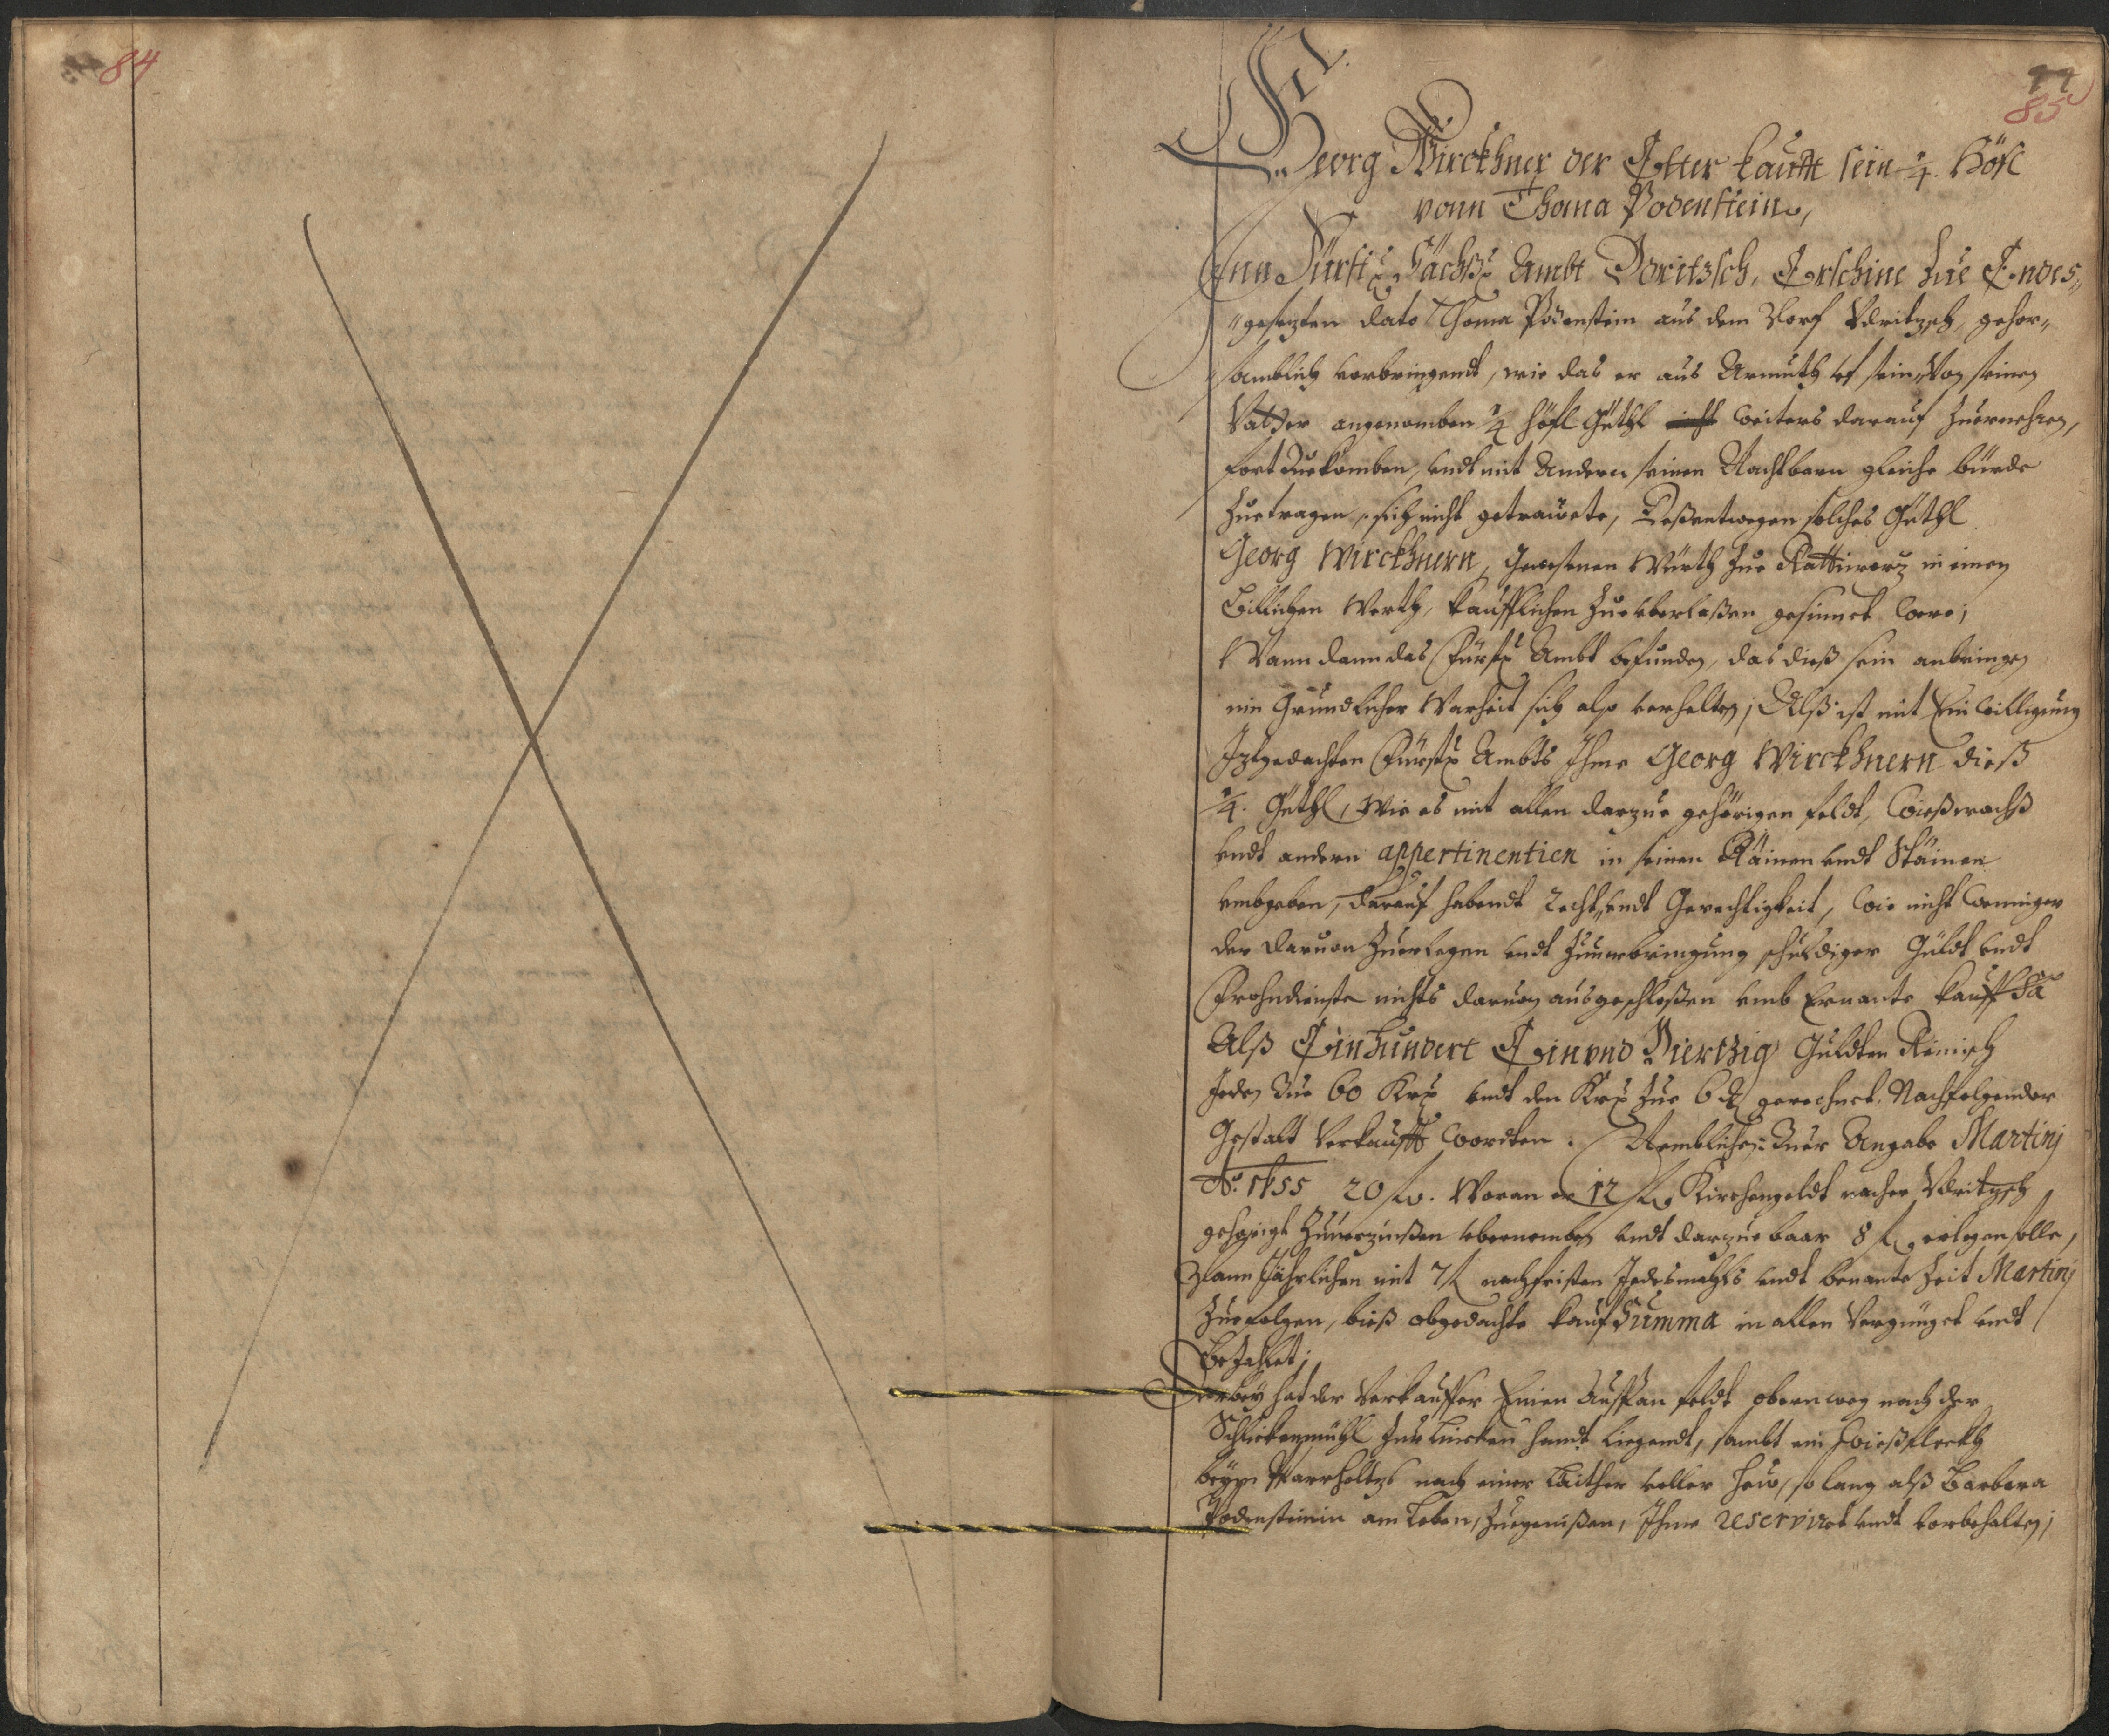 84
77
85
Georg Wirckhner der Elter kaufft sein ¼. Höfl
vonn Thoma Podenstein,
Inn Fürstl: Sächß: Ambt Doritzsch, Erschine zue Endes„
„gesezten dato Thoma Podenstein aus dem Dorf Vdritzsch, gehor„
„samblich vorbringendt, wie das er aus Armuth vf sein, Von seinen
Vatter angenomben ¼ höfl Güthl nicht weiters darauf zuernehren,
fort zuekomben, vndt mit Andern seinen Nachtbarn gleiche bürde
zuetragen, sich nicht getrawete, Deßentwegen solches Güthl
Georg Wirckhnern, Gewesenen Würth zue in einen
Billichen Werth, kaufflichen zueüberlaßen gesinnet were;
Wann dann das Fürstl: Ambt befunden, das dieß sein anbringen
inn Grundlicher Warheit sich also verhalten; Alß ist mit Einwilligung
Jztgedachten Fürstl: Ambts Ihme Georg Wirckhnern dieß
¼. Güthl, Wie es mit allen darzue gehörigen feldt, Wießwachß
vndt andern appertinentien in seinen Räinen vndt Stäinen
vmbgeben, darauf habendt Recht, vndt Gerechtigkeit, wie nicht Wenniger
der daruon zuerlegen vndt zuuerbringung schuldiger Güldt vndt
Frohndienste nichts daruon ausgeschloßen vmb Ernante kauff Sa
Alß Einhundert Einvnd Viertzig Guldten Reinisch
Jeden zue 60 Krz: vndt den Krz: zue 6 d gerechnet, Nachfolgender
Gestalt Verkaufft wordten. Nemblichen: Zuer Angabe Martinj
Ao: 1655 20 fl. Woran er 12 fl. Kirchengeldt nacher Vdritzsch
gehörigt zuuerzinßen vbernomben vndt darzue baar 8 fl. erlegen solle,
Dann Jährlichen mit 7 fl nachfristen Jedesmahls vndt benante Zeit Martinj
zuefolgen, bieß obgedachte kauf Summa in allen Vergnüget vndt
Bezahlet;
Hierbey hat der Verkauffer Einen feldt obern weg nach der
zur lincken handt liegendt, sambt ein Wießfleckh
beym Pfarrholtz nach einer laither voller hew, so lang alß Barbara
Podensteinin am Leben, zuegenißen, Ihme reserviret vndt vorbehalten;